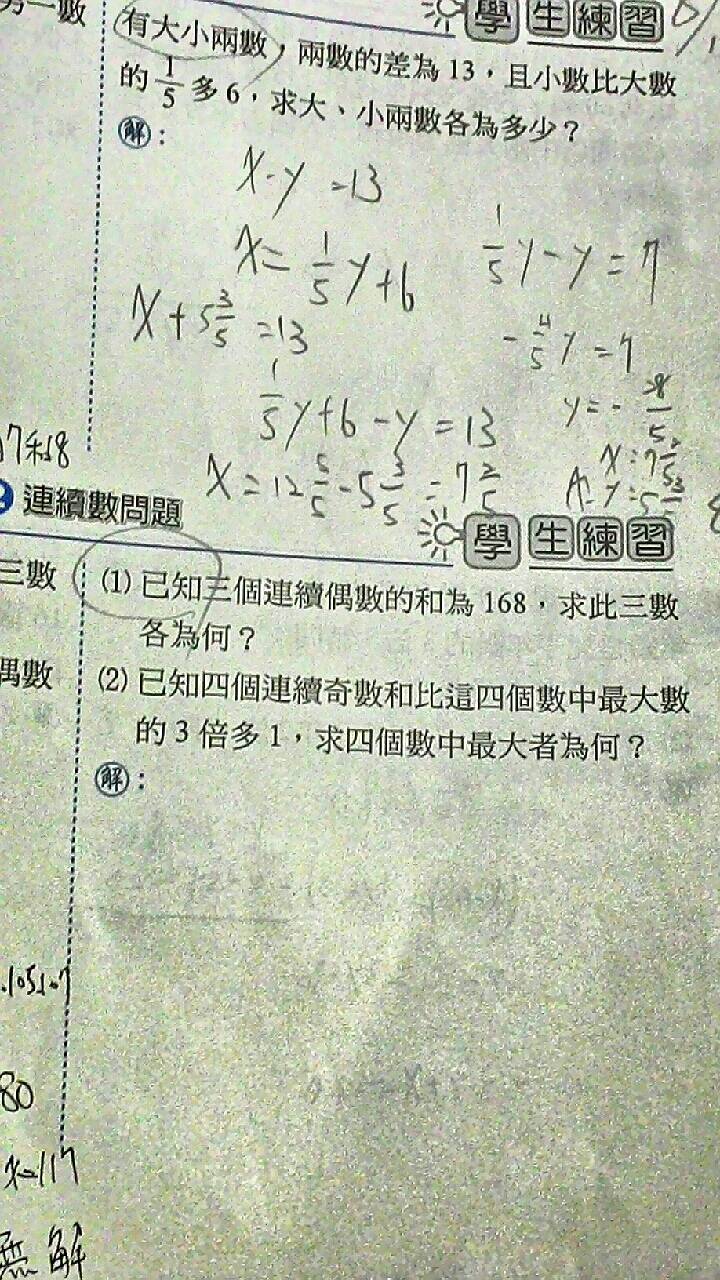 另一數
學生練習
有大小兩數，兩數的差為 13，且小數比大數
的 1/5 多 6，求大、小兩數各為多少？
解：
x-y=13
x=1/5y+6
1/5y-y=7
x+5 3/5=13
-4/5y=7
1/5y+6-y=13
x=12 5/5-5 3/5=7 2/5
17和18
連續數問題
學生練習
三數
(1) 已知三個連續偶數的和為 168，求此三數
各為何？
偶數
(2) 已知四個連續奇數和比這四個數中最大數
的 3 倍多 1，求四個數中最大者為何？
解：
80
x=117
無解